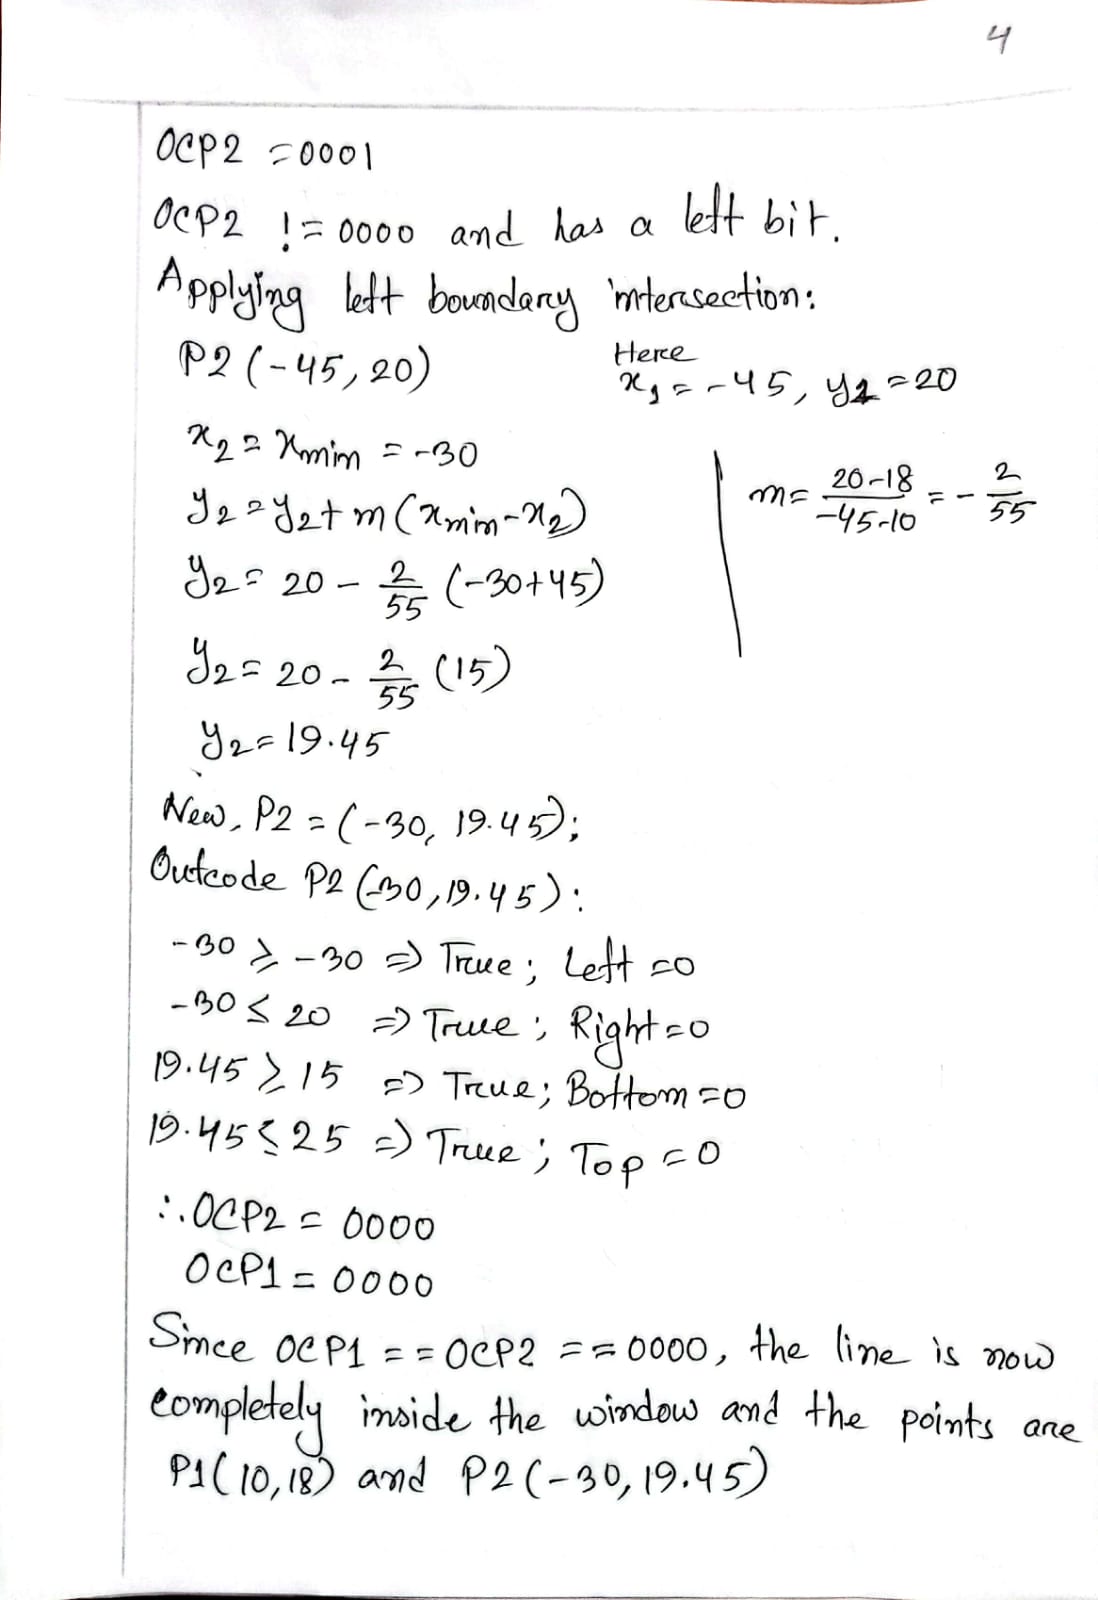 4
OCP2 = 0001
OCP2 != 0000 and has a left bit.
Applying left boundary intersection:
P2 (-45, 20)
Here
x₁ = -45, y₂ = 20
x₂ = xmin = -30
y₂ = y₂ + m (xmin - x₂)
m = (20-18)/(-45-10) = - 2/55
y₂ = 20 - 2/55 (-30+45)
y₂ = 20 - 2/55 (15)
y₂ = 19.45
New, P2 = (-30, 19.45);
Outcode P2 (-30, 19.45):
-30 ≥ -30 ⇒ True; Left = 0
-30 ≤ 20 ⇒ True; Right = 0
19.45 ≥ 15 ⇒ True; Bottom = 0
19.45 ≤ 25 ⇒ True; Top = 0
∴ OCP2 = 0000
OCP1 = 0000
Since OCP1 == OCP2 == 0000, the line is now
completely inside the window and the points are
P1(10,18) and P2(-30, 19.45)